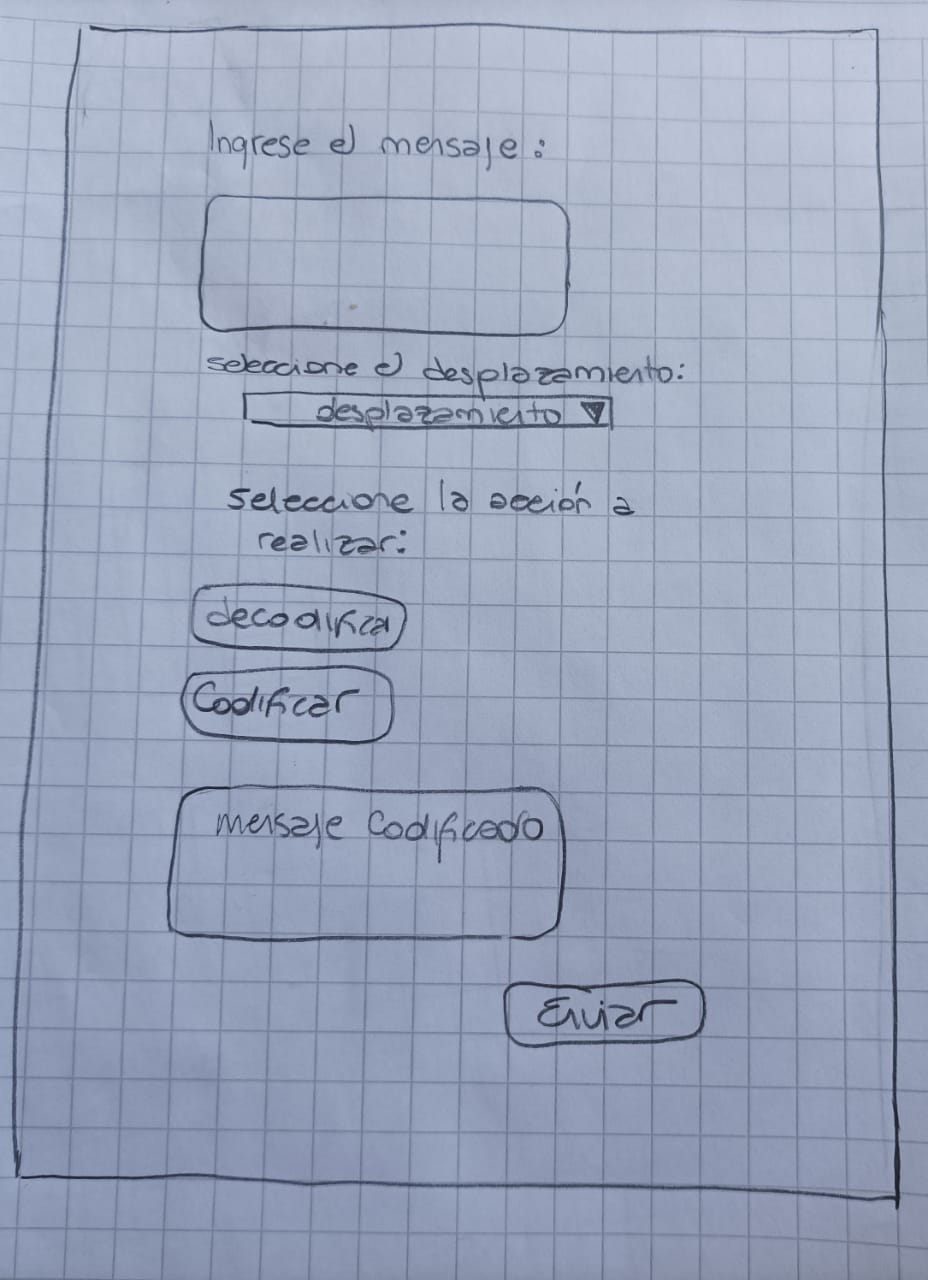 Ingrese el mensaje:
seleccione el desplazamiento:
desplazamiento
seleccione la opción a
realizar:
decodificar
Codificar
mensaje Codificado
Enviar